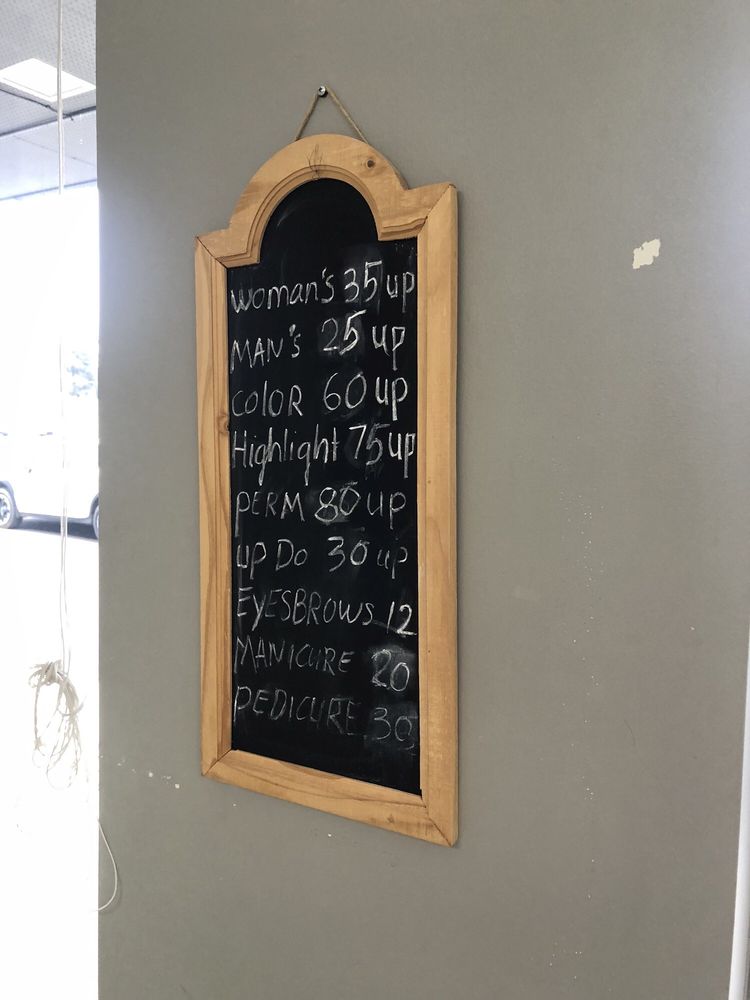 Woman's 35 up
MAN's 25 up
COlOR 60 up
Highlight 75 up
PERM 80 up
up Do 30 up
EYESBROWS 12
MANICURE 20
PEDICURE 30